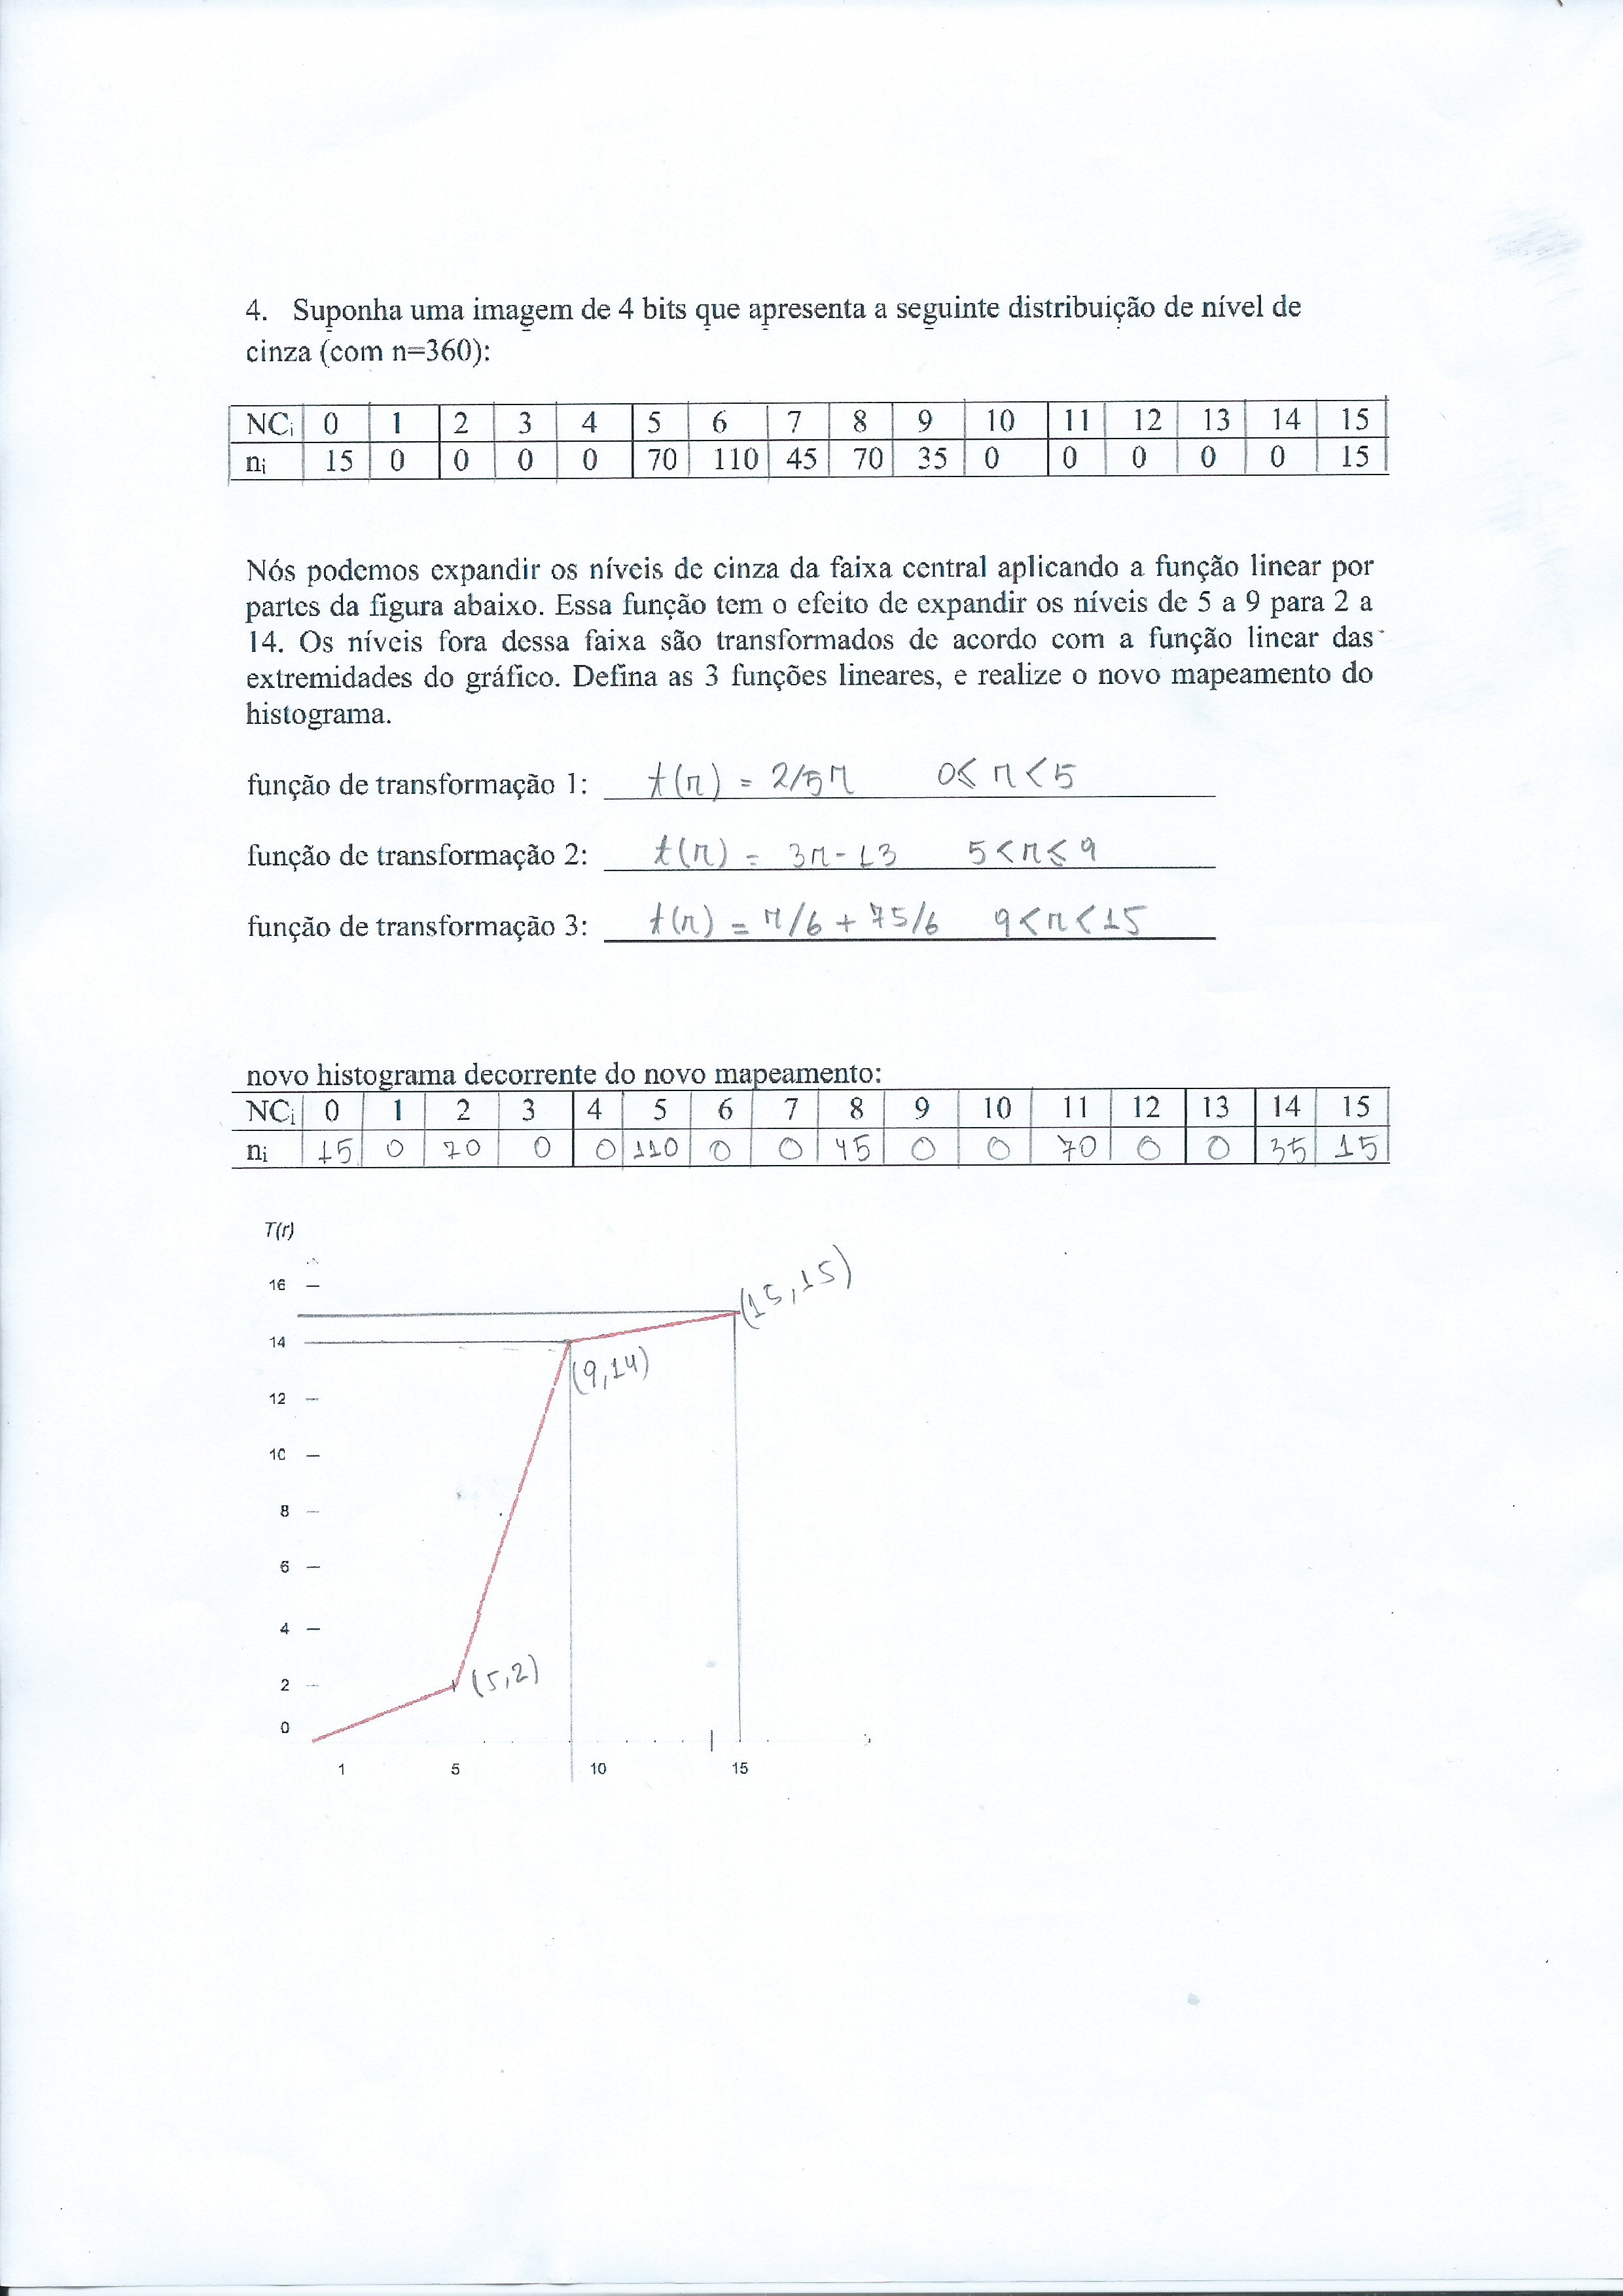 4. Suponha uma imagem de 4 bits que apresenta a seguinte distribuição de nível de
cinza (com n=360):
NCi 0 1 2 3 4 5 6 7 8 9 10 11 12 13 14 15
ni 15 0 0 0 0 70 110 45 70 35 0 0 0 0 0 15
Nós podemos expandir os níveis de cinza da faixa central aplicando a função linear por
partes da figura abaixo. Essa função tem o efeito de expandir os níveis de 5 a 9 para 2 a
14. Os níveis fora dessa faixa são transformados de acordo com a função linear das
extremidades do gráfico. Defina as 3 funções lineares, e realize o novo mapeamento do
histograma.
função de transformação 1: t(r) = 2/5r 0≤ r < 5
função de transformação 2: t(r) = 3r-13 5 < r ≤ 9
função de transformação 3: t(r) = r/6 + 75/6 9 < r < 15
novo histograma decorrente do novo mapeamento:
NCi 0 1 2 3 4 5 6 7 8 9 10 11 12 13 14 15
ni 15 0 70 0 0 110 0 0 45 0 0 70 0 0 35 15
T(r)
16
(15,15)
14
(9,14)
12
10
8
6
4
2
(5,2)
0
1 5 10 15